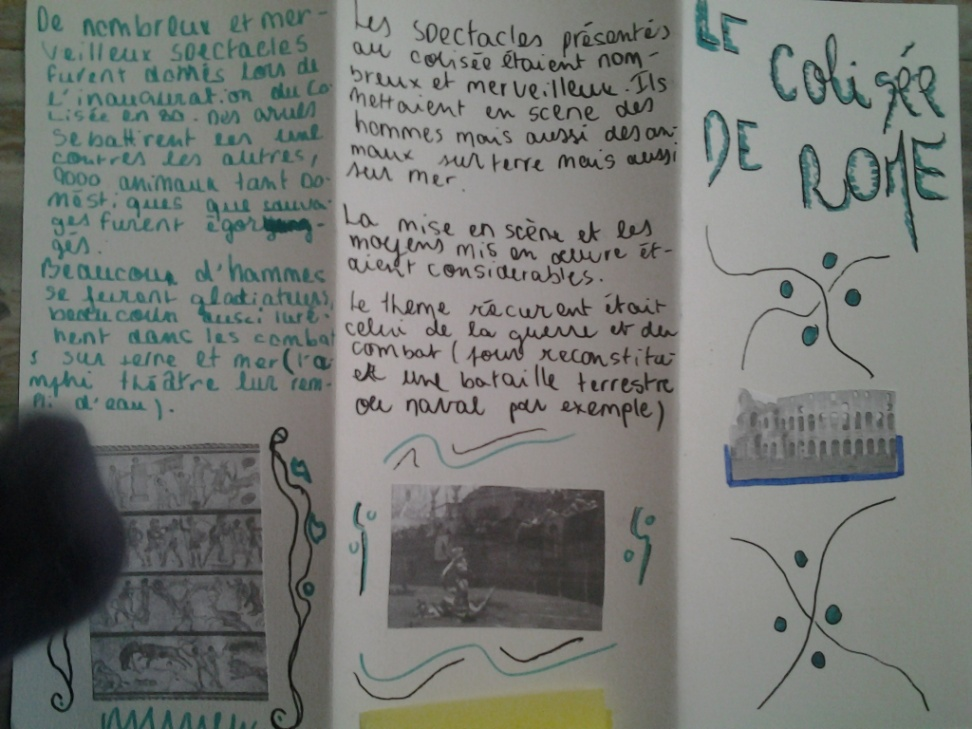 De nombreux et mer-
veilleux spectacles
furent donnés lors de
l'inauguration du Co-
lisée en 80. Des grues
se battirent les une
contres les autres,
9000 animaux tant do-
mestiques que sauva-
ges furent égor
gés.
Beaucoup d'hommes
se feront gladiateurs,
beaucoup aussi lutè-
rent dans les combat
s sur terre et mer (l'a-
mphi théâtre fut rem-
pli d'eau).
Les spectacles présentés
au colisée étaient nom-
breux et merveilleux. Ils
mettaient en scène des
hommes mais aussi des ani
maux sur terre mais aussi
sur mer.
La mise en scène et les
moyens mis en œuvre ét-
aient considerables.
Le theme récurent était
celui de la guerre et du
combat (pour reconstitu-
er une bataille terrestre
ou naval par exemple)
LE
Colisée
DE
ROME